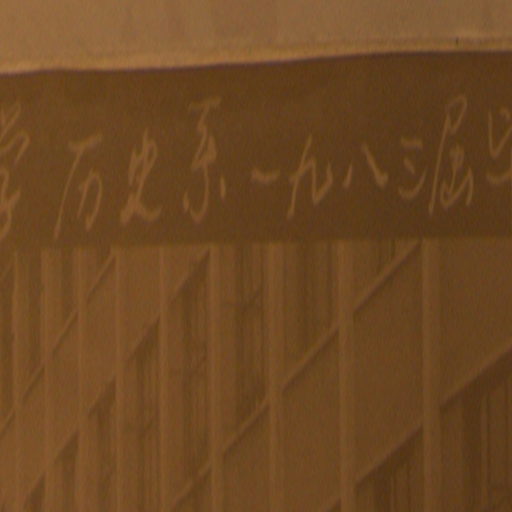 学历史系一九八三届毕